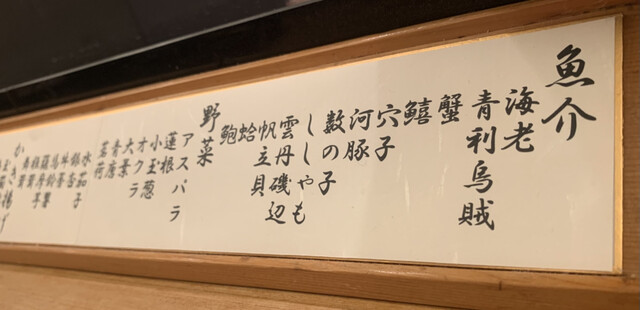 魚介
海老
青利烏賊
蟹
鱚
穴子
河豚
数の子
ししゃも
雲丹磯辺
帆立貝
蛤
鮑
野菜
アスパラ
蓮根
小玉葱
オクラ
大葉
青唐
茗荷
水茄子
銀杏
かき揚げ